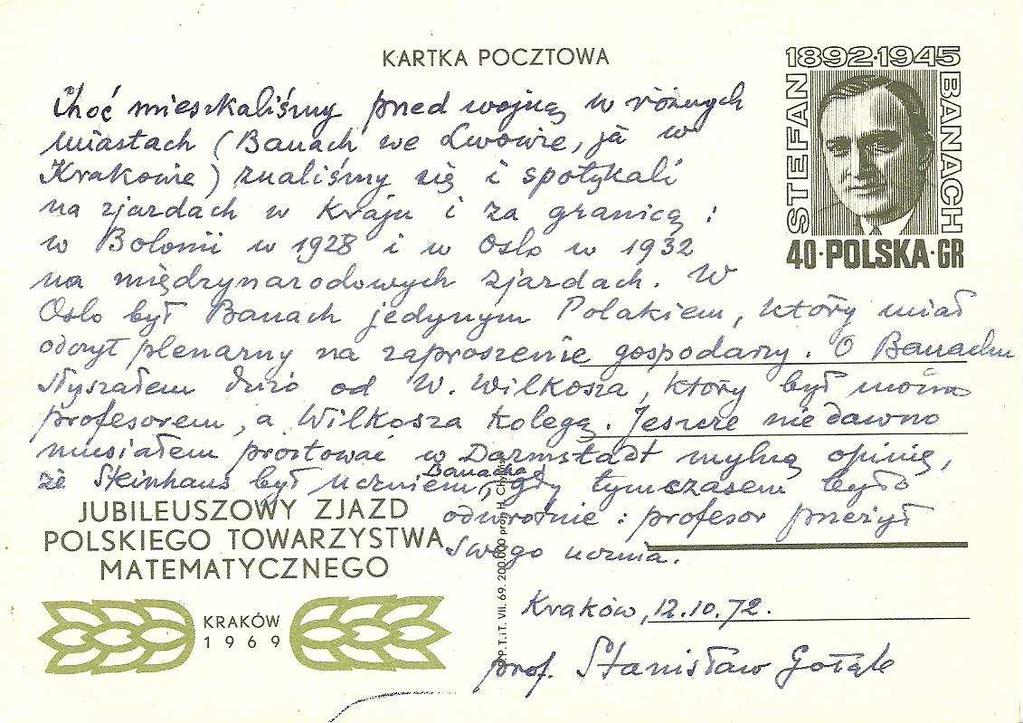 KARTKA POCZTOWA
1892·1945
STEFAN
BANACH
40·POLSKA·GR
Choć mieszkaliśmy przed wojną w różnych
miastach (Banach we Lwowie, ja w
Krakowie) znaliśmy się i spotykali
na zjazdach w Kraju i za granicą:
w Bolonii w 1928 i w Oslo w 1932
na międzynarodowych zjazdach. W
Oslo był Banach jedynym Polakiem, który miał
odczyt plenarny na zaproszenie gospodarzy. O Banachu
słyszałem dużo od W. Wilkosza, który był moim
profesorem, a Wilkosza kolegą. Jeszcze niedawno
musiałem prostować w Darmstadt mylną opinię,
że Steinhaus był uczniem Banacha, gdy tymczasem było
odwrotnie: profesor przeżył
swego ucznia.
Kraków, 12.10.72.
prof. Stanisław Gołąb
JUBILEUSZOWY ZJAZD
POLSKIEGO TOWARZYSTWA
MATEMATYCZNEGO
KRAKÓW
1969
T. VII. 69. 200.000 proj. H.